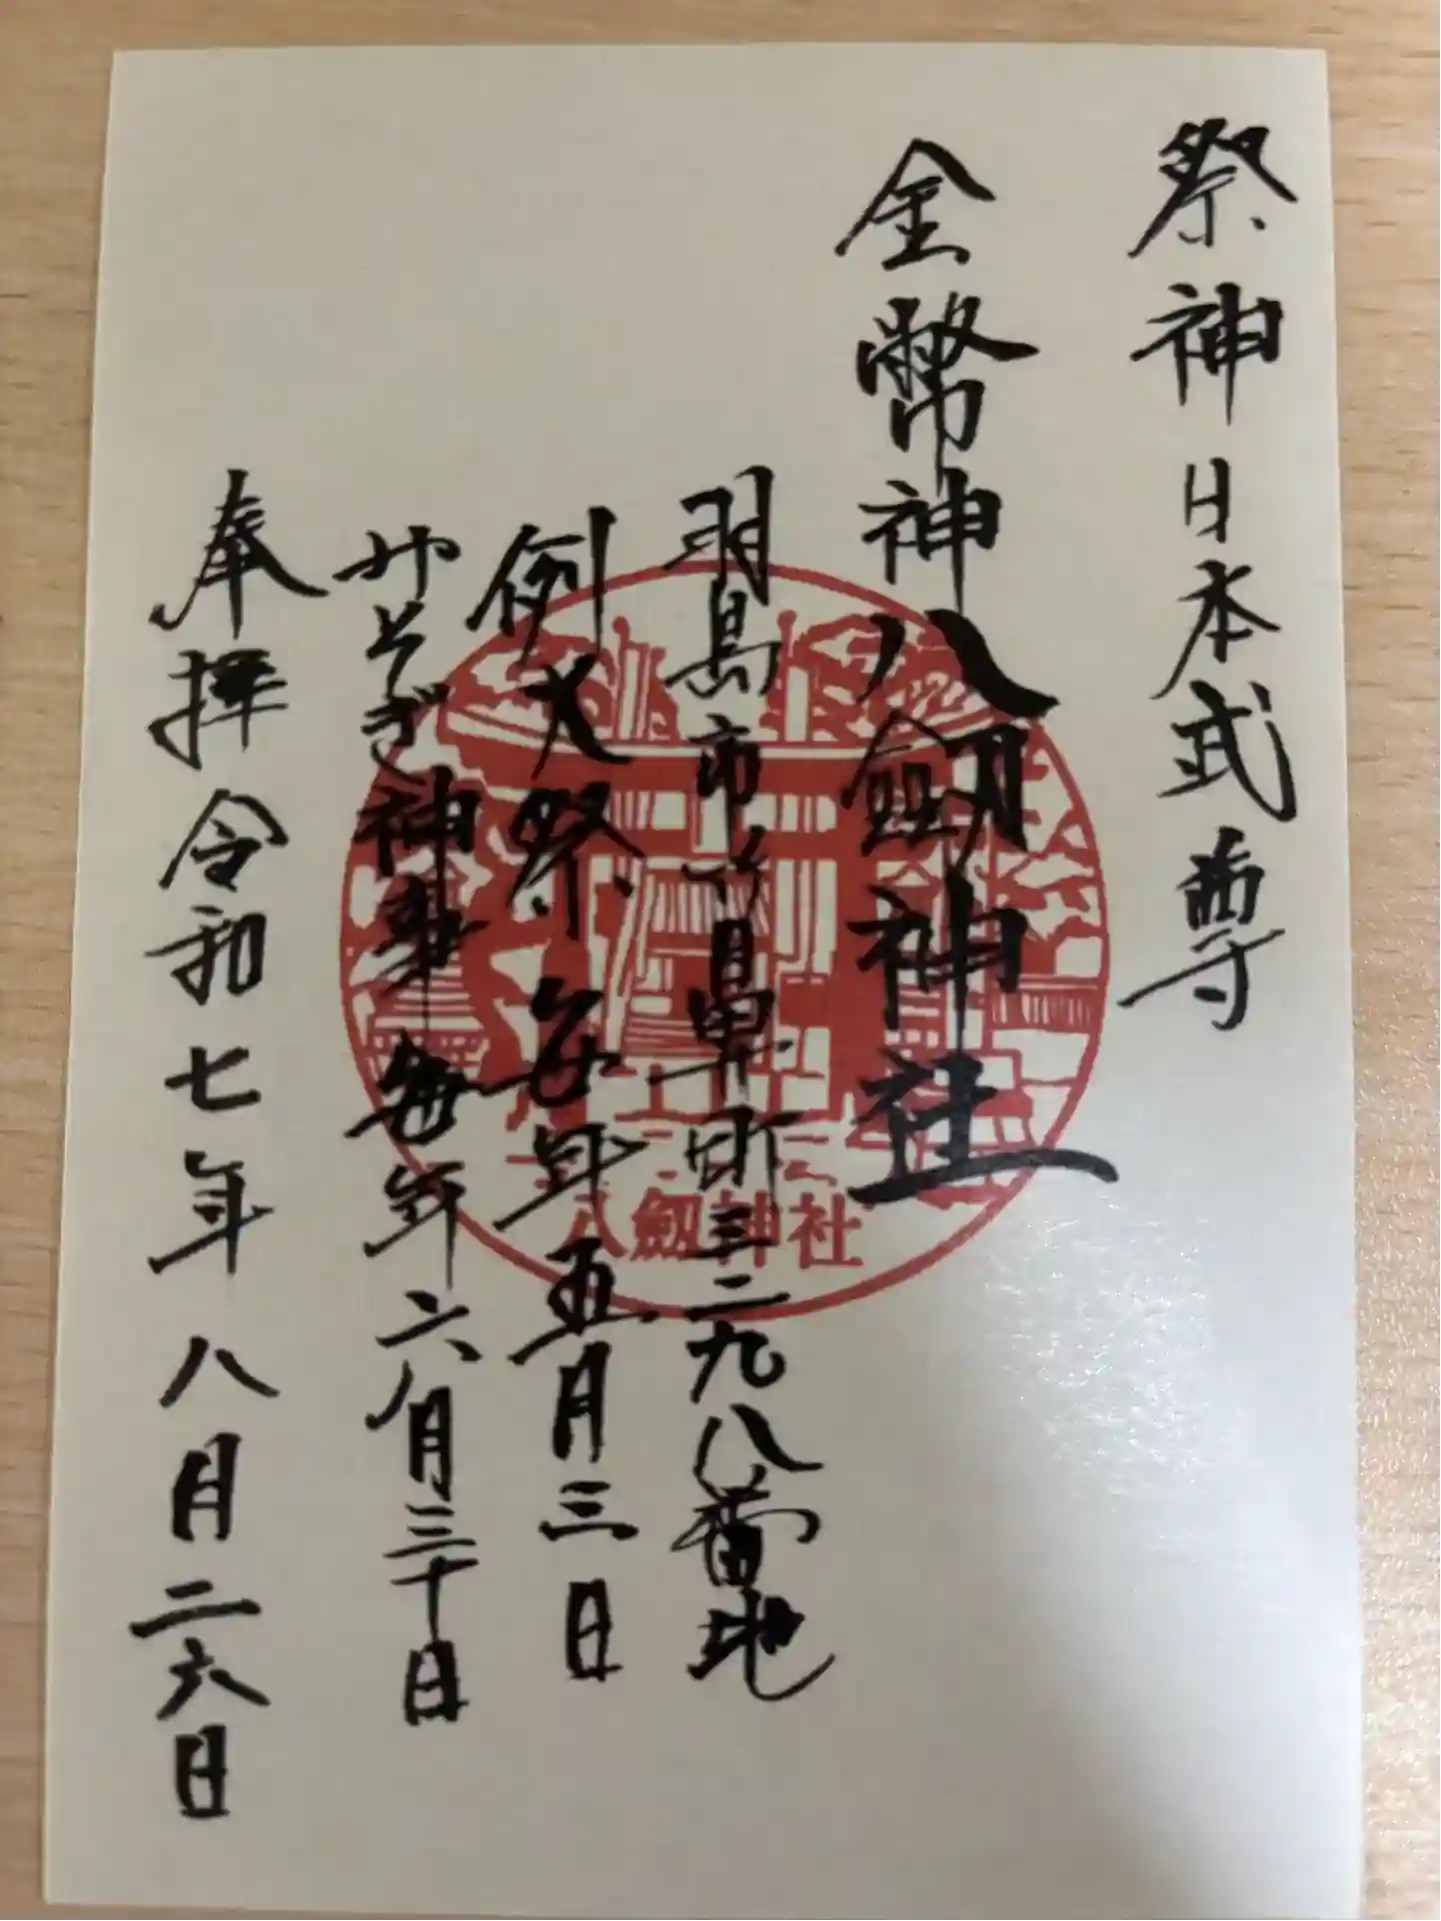 祭神日本武尊
金幣神八劔神社
羽島市竹鼻町三二九八番地
例大祭毎年五月三日
みそぎ神事毎年六月三十日
奉拝令和七年八月二六日
八劔神社